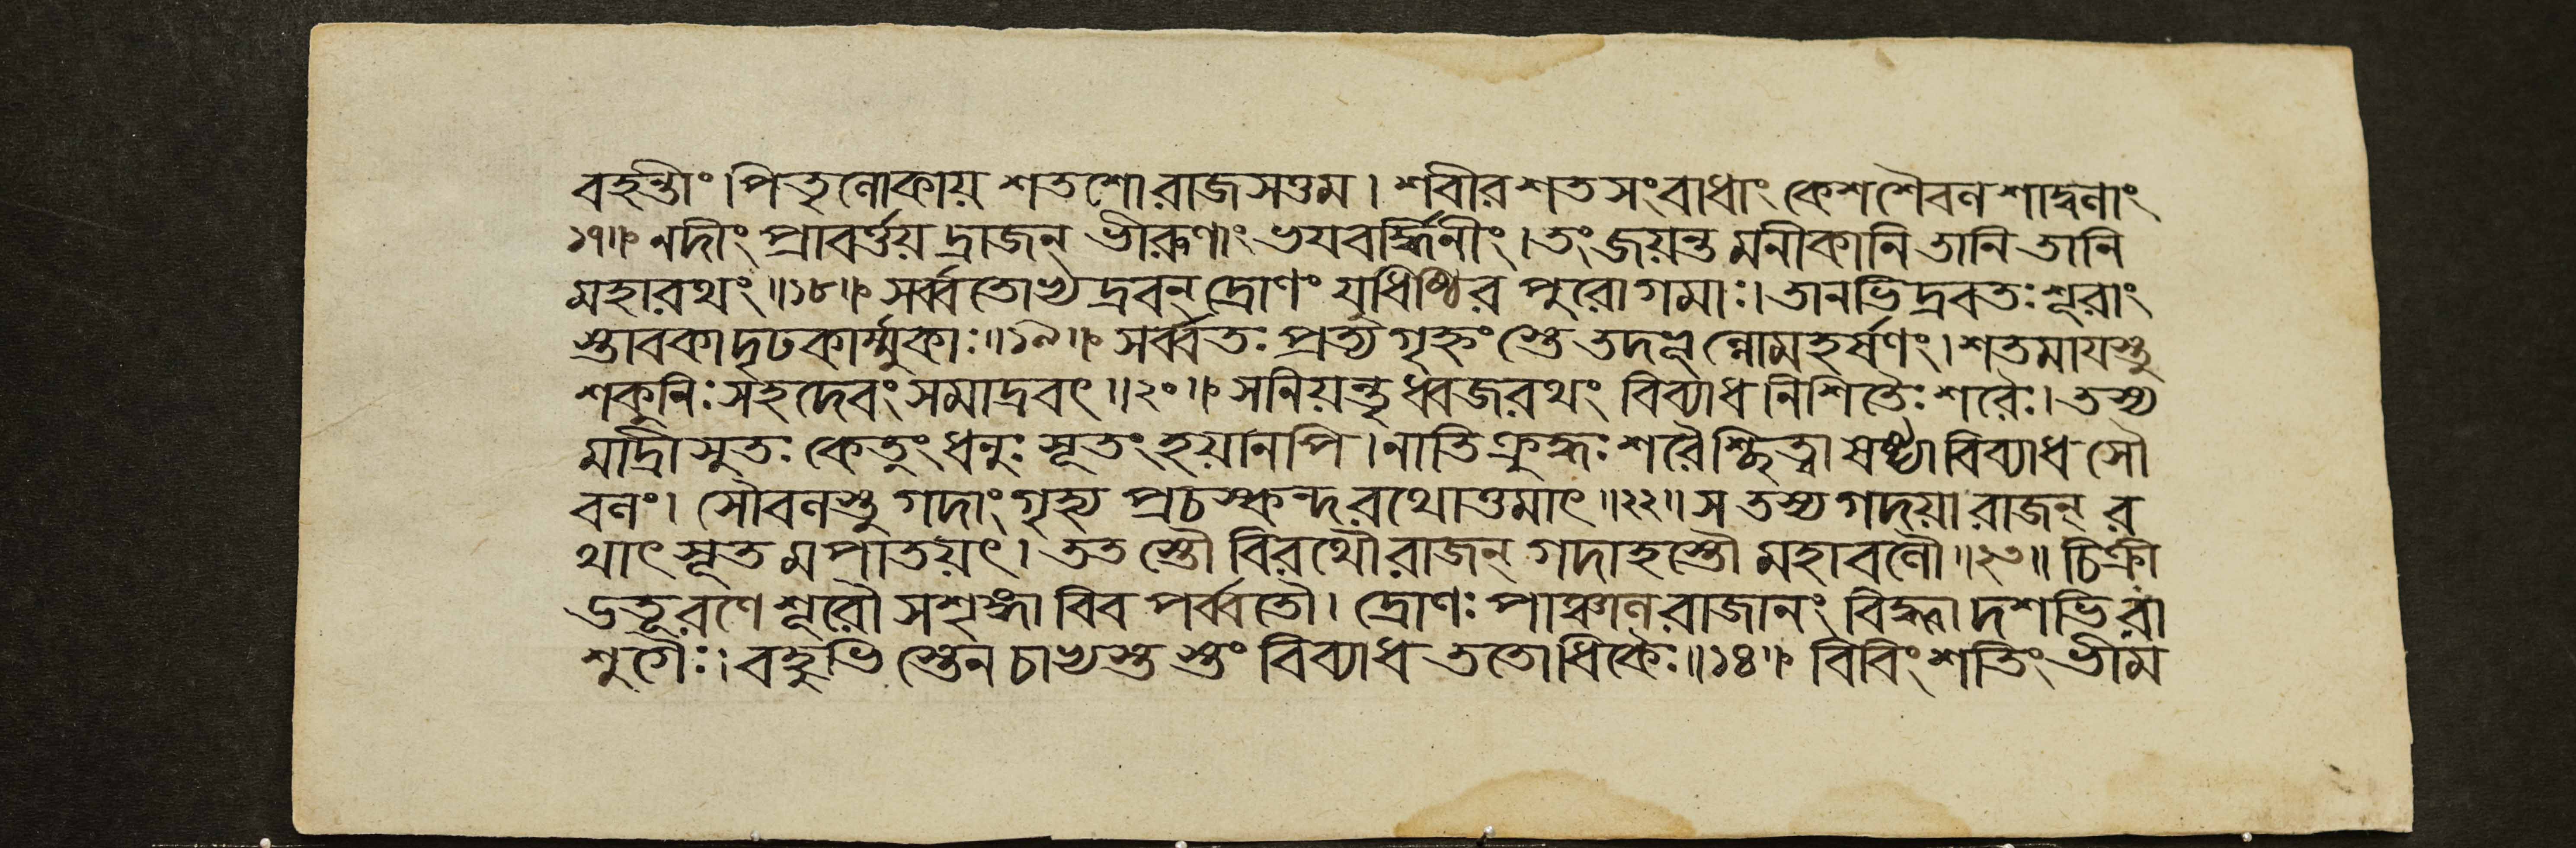 বহন্তীং।পিতৃলোকায় শতশো রাজসত্তম। শরীরশতসংবাধাং কেশশৈবলশাদ্বলাং
১৭॥ নদীং প্রাবর্ত্তয়দ্রাজন্ ভীরূণাং ভয়বর্দ্ধিনীং। তং জয়ন্তমনীকানি তানি তানি
মহারথং॥১৮॥ সর্ব্বতোভ্যদ্রবন্ দ্রোণং যুধিষ্ঠিরপুরোগমাঃ। তানভিদ্রবতঃ শূরাং
স্তাবকা দৃঢকার্ম্মুকাঃ॥১৯॥ সর্ব্বতঃ প্রত্যগৃহ্নংস্তে তদভূল্লোমহর্ষণং। শতমায়স্তু
শকুনিঃ সহদেবং সমাদ্রবৎ॥২০॥ সনিয়ন্তৃধ্বজরথং বিব্যাধ নিশিতৈঃ শরৈঃ। তস্য
মাদ্রীসুতঃ কেতুং ধনুঃ সূতং হয়ানপি। নাতিক্রুদ্ধঃ শরৈশ্ছিত্বা ষষ্ট্যা বিব্যাধ সৌ
বলং। সৌবলস্তু গদাং গৃহ্য প্রচস্কন্দ রথোত্তমাৎ॥২২॥ স তস্য গদয়া রাজন্ র
থাৎ সূতমপাতয়ৎ। ততস্তৌ বিরথৌ রাজন্ গদাহস্তৌ মহাবলৌ॥২৩॥ চিক্রী
ডতূ রণে শূরৌ সশৃঙ্গাবিব পর্ব্বতৌ। দ্রোণঃ পাঞ্চালরাজানং বিদ্ধ্বা দশভিরা
শুগৈঃ। বহুভিস্তেন চাভ্যস্তস্তং বিব্যাধ ততোধিকৈঃ॥২৪॥ বিবিংশতিং ভীম